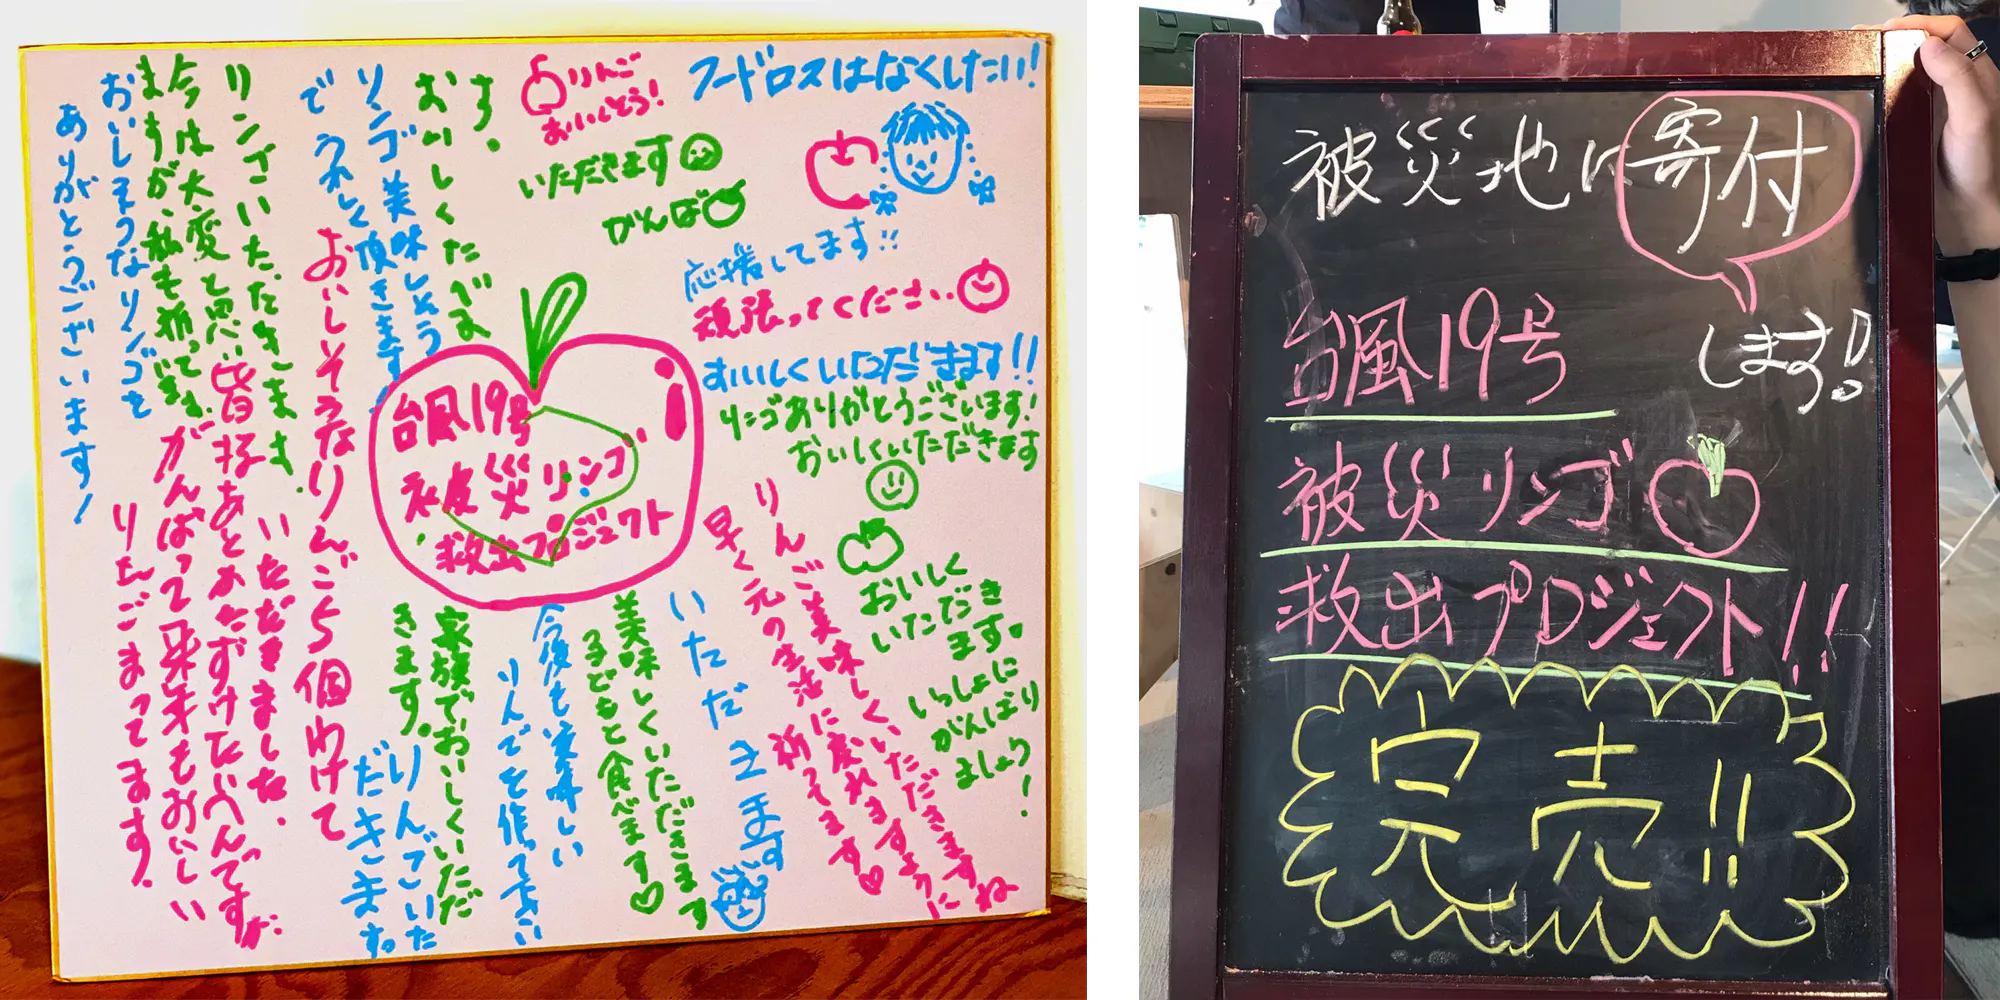 フードロスはなくしたい!
りんご
おいしそう!
いただきます
がんば
応援してます!!
頑張ってください
おいしくいただきます!!
リンゴありがとうございます!
おいしくいただきます
おいしく
いただき
ます。
いっしょに
がんばり
ましょう!
りんご美味しくいただきますね
早く元の生活に戻れますように
祈ってます♡
いただきます
美味しくいただきます
子どもと食べます♡
今後も美味しい
りんごを作って下さい
家族でおいしくいただ
きます。
りんごいた
だきます。
台風19号
被災リンゴ
救出プロジェクト
おいしくたべま
す。
リンゴ美味しそう
でうれしく頂きます!
おいしそうなりんご5個わけて
いただきました。
リンゴいただきます。
今は大変と思い
ますが、私も祈ってます。
皆様あとかたずけたいへんですが、
がんばって来年もおいしい
りんごまってます!
おいしそうなリンゴを
ありがとうございます!
被災地に寄付
します!
台風19号
被災リンゴ
救出プロジェクト!!
完売!!